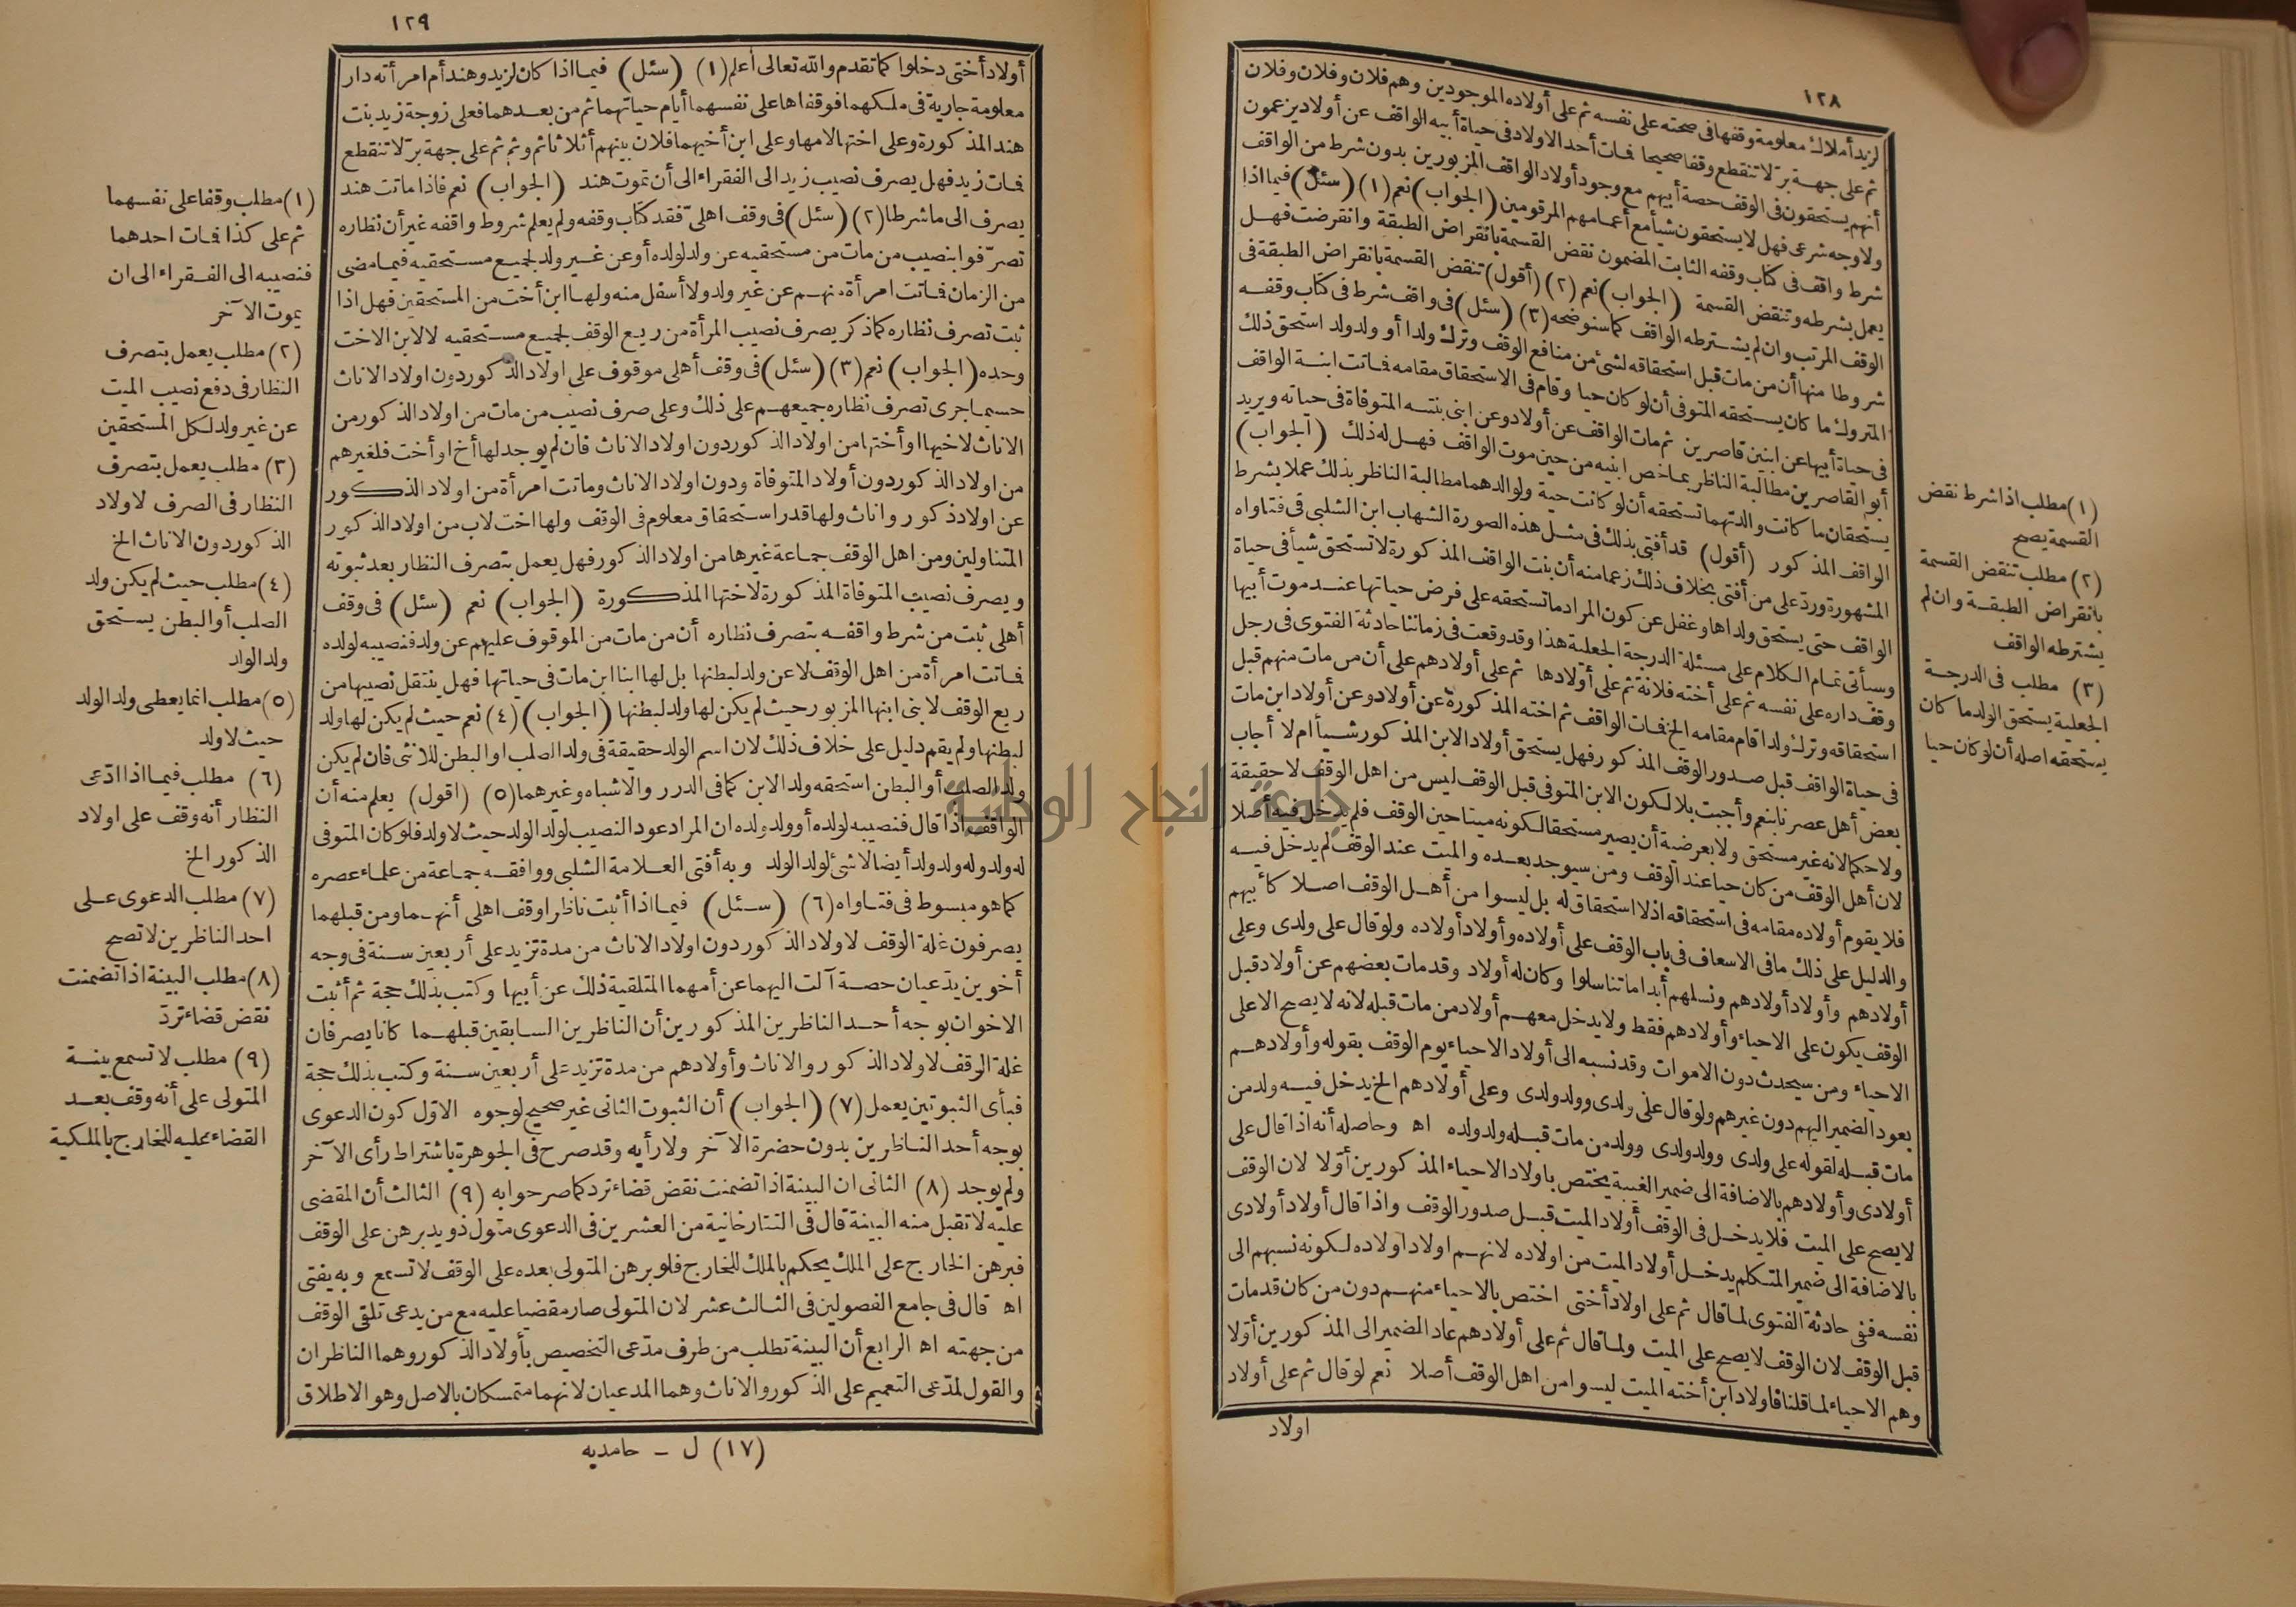 ١٢٨
لزيد أملاك معلومة وقفها فى صحته على نفسه ثم على أولاده الموجودين وهم فلان وفلان وفلان
ثم على جهة بر لا تنقطع وقفا صحيحا فمات أحد الاولاد فى حياة أبيه الواقف عن أولاد يزعمون
أنهم يستحقون فى الوقف حصة أبيهم مع وجود أولاد الواقف المزبورين بدون شرط من الواقف
ولا وجه شرعى فهل لا يستحقون شيأ مع أعمامهم المرقومين (الجواب) نعم (١) (سئل) فيما اذا
شرط واقف فى كتاب وقفه الثابت المضمون نقض القسمة بانقراض الطبقة وانقرضت فهل
يعمل بشرطه وتنقض القسمة (الجواب) نعم (٢) (أقول) تنقض القسمة بانقراض الطبقة فى
الوقف المرتب وان لم يشترطه الواقف كما سنوضحه (٣) (سئل) فى واقف شرط فى كتاب وقفه
شروطا منها أن من مات قبل استحقاقه لشئ من منافع الوقف وترك ولدا أو ولد ولد استحق ذلك
المتروك ما كان يستحقه المتوفى أن لو كان حيا وقام فى الاستحقاق مقامه فماتت ابنة الواقف
فى حياة أبيها عن ابنين قاصرين ثم مات الواقف عن أولاد وعن ابنى بنته المتوفاة فى حياته ويريد
أبو القاصرين مطالبة الناظر بما خص ابنيه من حين موت الواقف فهل له ذلك (الجواب)
يستحقان ما كانت والدتهما تستحقه أن لو كانت حية ولوالدهما مطالبة الناظر بذلك عملا بشرط
الواقف المذكور (أقول) قد أفتى بذلك فى مثل هذه الصورة الشهاب ابن الشلبى فى فتاواه
المشهورة ورد على من أفتى بخلاف ذلك زعما منه أن بنت الواقف المذكورة لا تستحق شيأ فى حياة
الواقف حتى يستحق ولداها وغفل عن كون المراد ما تستحقه على فرض حياتها عند موت أبيها
وسيأتى تمام الكلام على مسئلة الدرجة الجعلية هذا وقد وقعت فى زماننا حادثة الفتوى فى رجل
وقف داره على نفسه ثم على أخته فلانة ثم على أولادها ثم على أولادهم على أن من مات منهم قبل
استحقاقه وترك ولدا قام مقامه الخ فمات الواقف ثم اخته المذكورة عن أولاد وعن أولاد ابن مات
فى حياة الواقف قبل صدور الوقف المذكور فهل يستحق أولاد الابن المذكور شيأ أم لا أجاب
بعض أهل عصرنا بنعم وأجبت بلا لكون الابن المتوفى قبل الوقف ليس من اهل الوقف لا حقيقة
ولا حكما لانه غير مستحق ولا بعرضية أن يصير مستحقا لكونه ميتا حين الوقف فلم يدخل فيه أصلا
لان أهل الوقف من كان حيا عند الوقف ومن سيوجد بعده والميت عند الوقف لم يدخل فيه
فلا يقوم أولاده مقامه فى استحقاقه اذ لا استحقاق له بل ليسوا من أهل الوقف اصلا كأبيهم
والدليل على ذلك ما فى الاسعاف فى باب الوقف على أولاده وأولاد أولاده ولو قال على ولدى وعلى
أولادهم وأولاد أولادهم ونسلهم أبدا ما تناسلوا وكان له أولاد وقد مات بعضهم عن أولاد قبل
الوقف يكون على الاحياء وأولادهم فقط ولا يدخل معهم أولاد من مات قبله لانه لا يصح الا على
الاحياء ومن سيحدث دون الاموات وقد نسبه الى أولاد الاحياء يوم الوقف بقوله وأولادهم
يعود الضمير اليهم دون غيرهم ولو قال على ولدى وولد ولدى وعلى أولادهم الخ يدخل فيه ولد من
مات قبله لقوله على ولدى وولد ولدى وولد من مات قبله ولد ولده اه وحاصله أنه اذا قال على
أولادى وأولادهم بالاضافة الى ضمير الغيبة يختص باولاد الاحياء المذكورين أولا لان الوقف
لا يصح على الميت فلا يدخل فى الوقف أولاد الميت قبل صدور الوقف واذا قال أولاد أولادى
بالاضافة الى ضمير المتكلم يدخل أولاد الميت من اولاده لانهم اولاد اولاده لكونه نسبهم الى
نفسه ففى حادثة الفتوى لما قال ثم على اولاد أختى اختص بالاحياء منهم دون من كان قد مات
قبل الوقف لان الوقف لا يصح على الميت ولما قال ثم على أولادهم عاد الضمير الى المذكورين أولا
وهم الاحياء لما قلنا فاولاد ابن أخته الميت ليسوا من اهل الوقف أصلا نعم لو قال ثم على أولاد
اولاد
(١) مطلب اذا شرط نقض
القسمة يصح
(٢) مطلب تنقض القسمة
بانقراض الطبقة وان لم
يشترطه الواقف
(٣) مطلب فى الدرجة
الجعلية يستحق الولد ما كان
يستحقه اصله أن لو كان حيا
١٢٩
أولاد أختى دخلوا كما تقدم والله تعالى أعلم (١) (سئل) فيما اذا كان لزيد وهند أم امرأته دار
معلومة جارية فى ملكهما فوقفاها على نفسهما أيام حياتهما ثم من بعدهما فعلى زوجة زيد بنت
هند المذكورة وعلى اختها لامها وعلى ابن أخيهما فلان بينهم أثلاثا ثم وثم ثم على جهة بر لا تنقطع
فمات زيد فهل يصرف نصيب زيد الى الفقراء الى أن تموت هند (الجواب) نعم فاذا ماتت هند
يصرف الى ما شرطا (٢) (سئل) فى وقف اهلى فقد كتاب وقفه ولم يعلم شروط واقفه غير أن نظاره
تصرفوا بنصيب من مات من مستحقيه عن ولد لولده أو عن غير ولد لجميع مستحقيه فيما مضى
من الزمان فماتت امرأة منهم عن غير ولد ولا أسفل منه ولها ابن أخت من المستحقين فهل اذا
ثبت تصرف نظاره كما ذكر يصرف نصيب المرأة من ريع الوقف لجميع مستحقيه لا لابن الاخت
وحده (الجواب) نعم (٣) (سئل) فى وقف أهلى موقوف على اولاد الذكور دون اولاد الاناث
حسبما جرى تصرف نظاره جميعهم على ذلك وعلى صرف نصيب من مات من اولاد الذكور من
الاناث لاخيها او أختها من اولاد الذكور دون اولاد الاناث فان لم يوجد لها أخ او أخت فلغيرهم
من اولاد الذكور دون أولاد المتوفاة ودون اولاد الاناث وماتت امرأة من اولاد الذكور
عن اولاد ذكور واناث ولها قدر استحقاق معلوم فى الوقف ولها اخت لاب من اولاد الذكور
المتناولين ومن اهل الوقف جماعة غيرها من اولاد الذكور فهل يعمل بتصرف النظار بعد ثبوته
ويصرف نصيب المتوفاة المذكورة لاختها المذكورة (الجواب) نعم (سئل) فى وقف
أهلى ثبت من شرط واقفه بتصرف نظاره أن من مات من الموقوف عليهم عن ولد فنصيبه لولده
فماتت امرأة من اهل الوقف لا عن ولد لبطنها بل لها ابنا ابن مات فى حياتها فهل ينتقل نصيبها من
ريع الوقف لابنى ابنها المزبور حيث لم يكن لها ولد لبطنها (الجواب) (٤) نعم حيث لم يكن لها ولد
لبطنها ولم يقم دليل على خلاف ذلك لان اسم الولد حقيقة فى ولد الصلب او البطن للانثى فان لم يكن
ولد الصلب أو البطن استحقه ولد الابن كما فى الدرر والاشباه وغيرهما (٥) (اقول) يعلم منه أن
الواقف اذا قال فنصيبه لولده أو ولد ولده ان المراد عود النصيب لولد الولد حيث لا ولد فلو كان المتوفى
له ولد وله ولد ولد أيضا لا شئ لولد الولد وبه أفتى العلامة الشلبى ووافقه جماعة من علماء عصره
كما هو مبسوط فى فتاواه (٦) (سئل) فيما اذا أثبت ناظرا وقف اهلى أنهما ومن قبلهما
يصرفون غلة الوقف لاولاد الذكور دون اولاد الاناث من مدة تزيد على أربعين سنة فى وجه
أخوين يدعيان حصة آلت اليهما عن أمهما المتلقية ذلك عن أبيها وكتب بذلك حجة ثم أثبت
الاخوان بوجه أحد الناظرين المذكورين أن الناظرين السابقين قبلهما كانا يصرفان
غلة الوقف لاولاد الذكور والاناث وأولادهم من مدة تزيد على أربعين سنة وكتب بذلك حجة
فبأى الثبوتين يعمل (٧) (الجواب) أن الثبوت الثانى غير صحيح لوجوه الاول كون الدعوى
بوجه أحد الناظرين بدون حضرة الآخر ولا رأيه وقد صرح فى الجوهرة باشتراط رأى الآخر
ولم يوجد (٨) الثانى ان البينة اذا تضمنت نقض قضاء ترد كما صرحوا به (٩) الثالث أن المقضى
عليه لا تقبل منه البينة قال فى التتارخانية من العشرين فى الدعوى متول ذو يد برهن على الوقف
فبرهن الخارج على الملك يحكم بالملك للخارج فلو برهن المتولى بعده على الوقف لا تسمع وبه يفتى
اه قال فى جامع الفصولين فى الثالث عشر لان المتولى صار مقضيا عليه مع من يدعى تلقى الوقف
من جهته اه الرابع أن البينة تطلب من طرف مدعى التخصيص بأولاد الذكور وهما الناظران
والقول لمدعى التعميم على الذكور والاناث وهما المدعيان لانهما متمسكان بالاصل وهو الاطلاق
(١٧) ل – حامديه
(١) مطلب وقفا على نفسهما
ثم على كذا فمات احدهما
فنصيبه الى الفقراء الى ان
يموت الآخر
(٢) مطلب يعمل بتصرف
النظار فى دفع نصيب الميت
عن غير ولد لكل المستحقين
(٣) مطلب يعمل بتصرف
النظار فى الصرف لاولاد
الذكور دون الاناث الخ
(٤) مطلب حيث لم يكن ولد
الصلب أو البطن يستحق
ولد الولد
(٥) مطلب انما يعطى ولد الولد
حيث لا ولد
(٦) مطلب فيما اذا ادعى
النظار أنه وقف على اولاد
الذكور الخ
(٧) مطلب الدعوى على
احد الناظرين لا تصح
(٨) مطلب البينة اذا تضمنت
نقض قضاء ترد
(٩) مطلب لا تسمع بينة
المتولى على أنه وقف بعد
القضاء عليه للخارج بالملكية
جامعة النجاح الوطنية